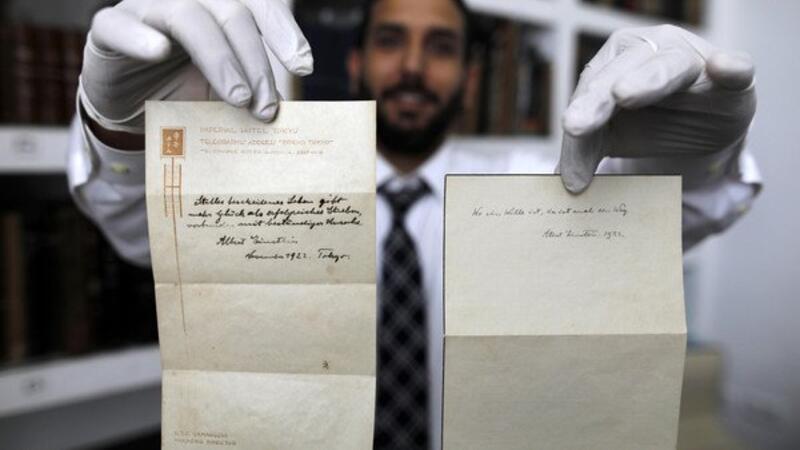 IMPERIAL HOTEL TOKYO
TELEGRAPHIC ADDRESS
Stilles bescheidenes Leben gibt
mehr Glück als erfolgreiches Streben,
verbunden mit beständiger Unruhe.
Albert Einstein
November 1922. Tokyo.
MANAGING DIRECTOR
Wo ein Wille ist, da ist auch ein Weg
Albert Einstein. 1922.